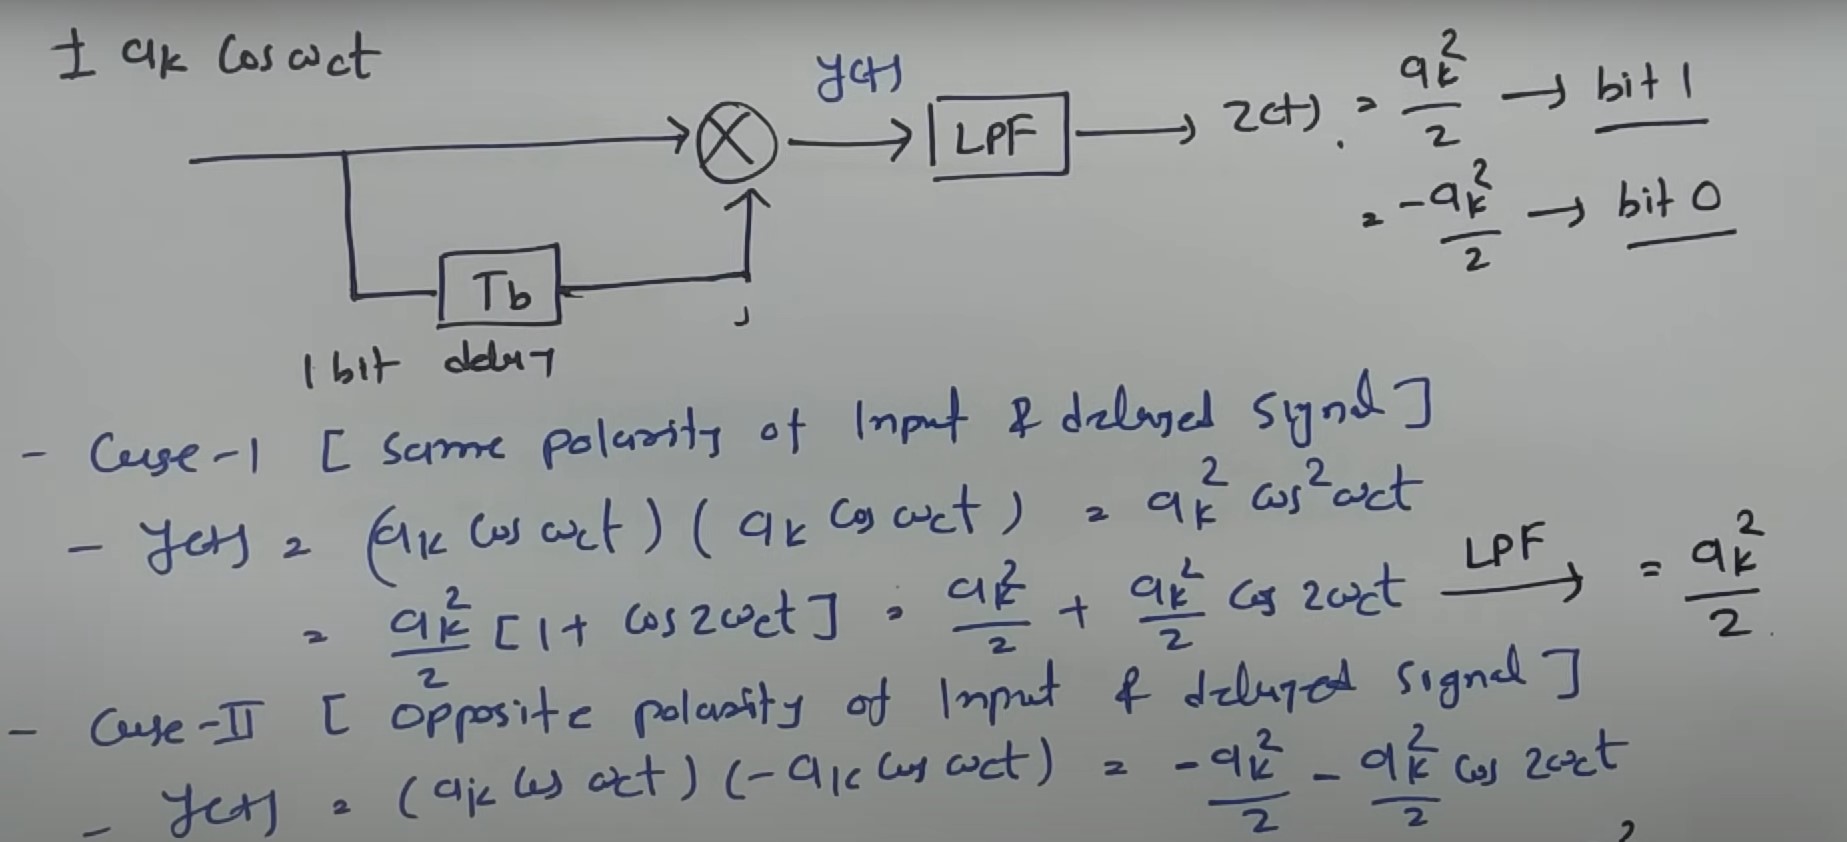 ± ak Cos ωct
y(t)
LPF
z(t) = ak²/2 → bit 1
= -ak²/2 → bit 0
Tb
1 bit delay
- Case-1 [ Same polarity of Input & delayed signal ]
- y(t) = (ak Cos ωct) ( ak Cos ωct ) = ak² cos² ωct
= ak²/2 [ 1 + cos 2ωct ] = ak²/2 + ak²/2 Cos 2ωct LPF → = ak²/2
- Case-II [ Opposite polarity of Input & delayed signal ]
- y(t) = ( ak Cos ωct ) (- ak Cos ωct ) = - ak²/2 - ak²/2 Cos 2ωct